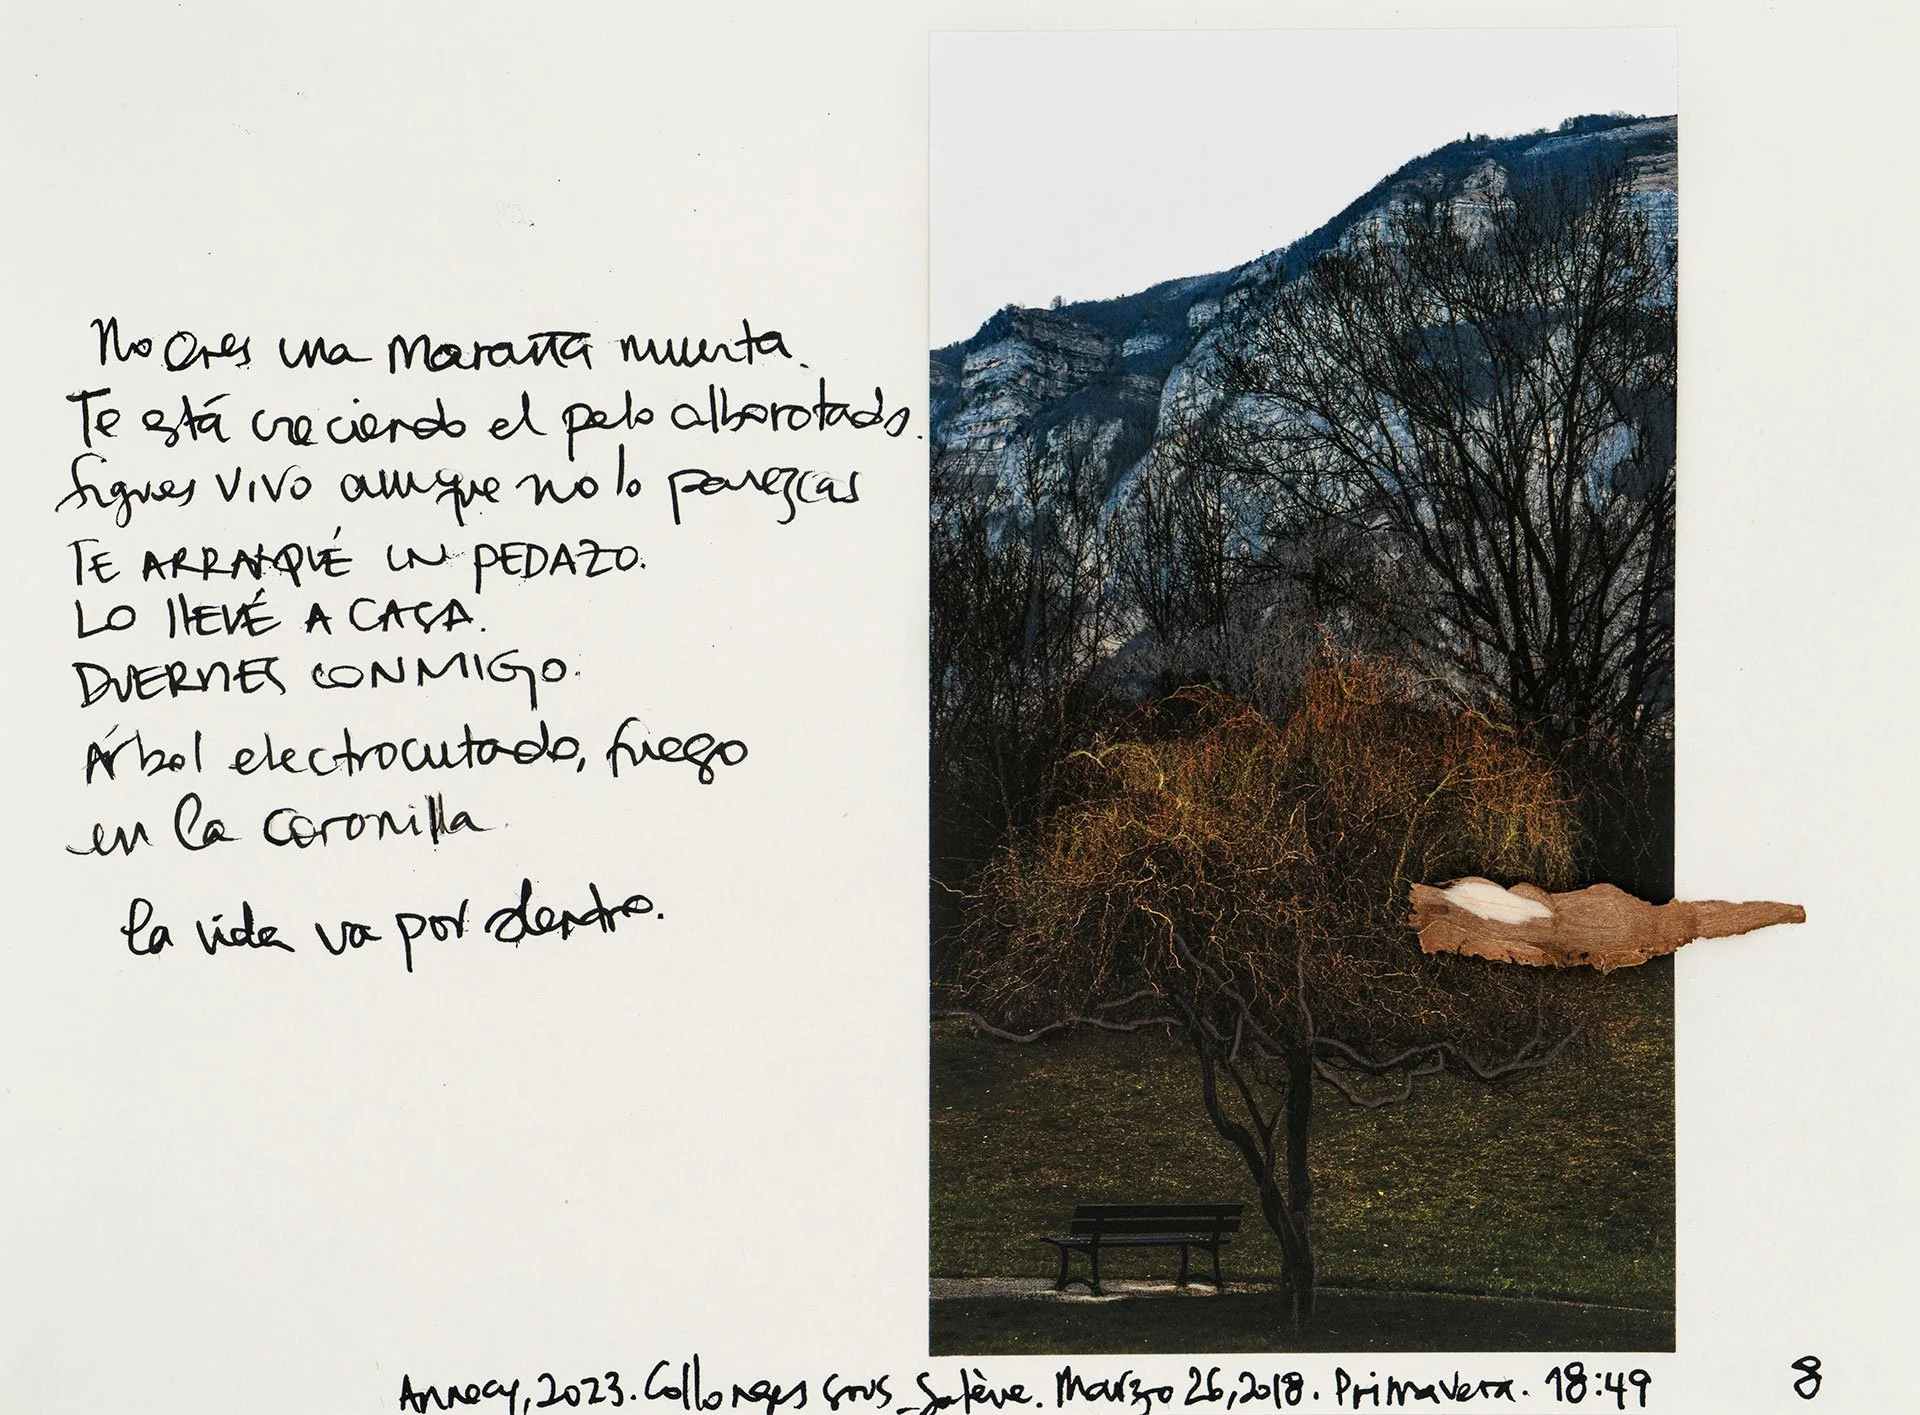 No eres una maraña muerta.
Te está creciendo el pelo alborotado.
Sigues vivo aunque no lo parezcas
TE ARRANQUÉ UN PEDAZO.
LO llEVÉ A CASA.
DUERMES CONMIGO.
Árbol electrocutado, fuego
en la coronilla
la vida va por dentro.
Annecy, 2023. Collonges sous_Salève. Marzo 26, 2018. Primavera. 18:49
8